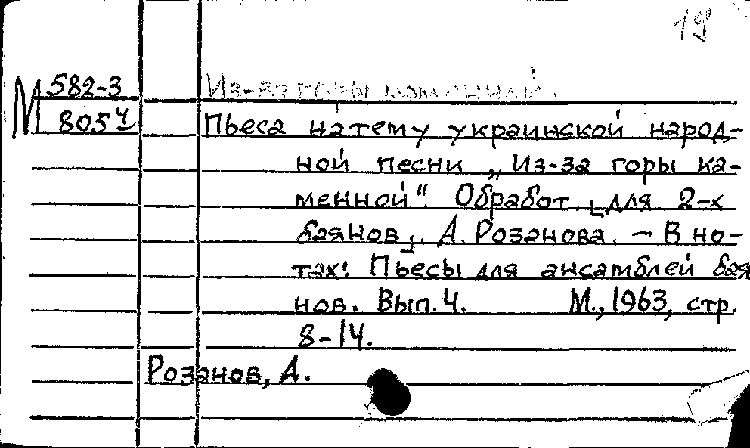 19
М 582-3
805 ч
Из-за горы каменной.
Пьеса на тему украинской народ-
ной песни „Из-за горы ка-
менной“. Обработ. [для 2-х
баянов]. А. Розанова. – В но-
тах: Пьесы для ансамблей бая
нов. Вып. 4. М., 1963, стр.
8-14.
Розанов, А.